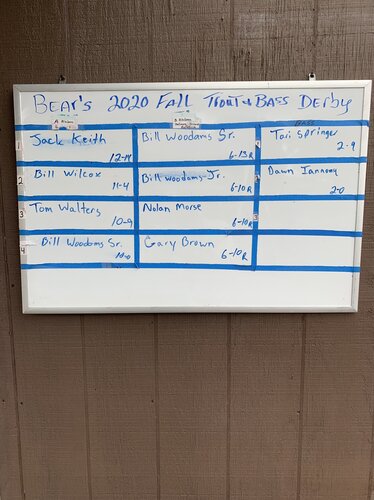 BEAR'S 2020 FALL TROUT & BASS DERBY
BASS
1 Jack Keith
12-14
Bill Woodams Sr.
6-13R
Tari Springer
2-9
2 Bill Wilcox
11-4
Bill Woodams Jr.
6-10R
Dawn Iannony
2-0
3 Tom Walters
10-9
Nolan Morse
6-10R
3
4 Bill Woodams Sr.
10-0
Gary Brown
6-10R